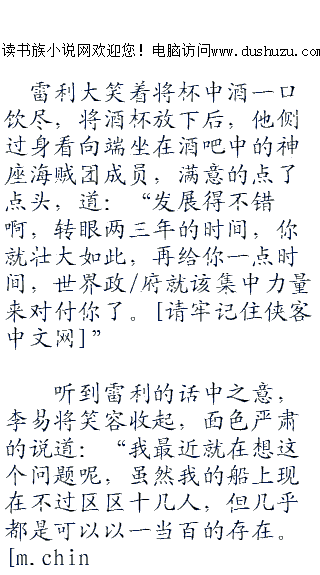 读书族小说网欢迎您！电脑访问www.dushuzu.com
雷利大笑着将杯中酒一口
饮尽，将酒杯放下后，他侧
过身看向端坐在酒吧中的神
座海贼团成员，满意的点了
点头，道：“发展得不错
啊，转眼两三年的时间，你
就壮大如此，再给你一点时
间，世界政/府就该集中力量
来对付你了。[请牢记住侠客
中文网]”
听到雷利的话中之意，
李易将笑容收起，面色严肃
的说道：“我最近就在想这
个问题呢，虽然我的船上现
在不过区区十几人，但几乎
都是可以以一当百的存在。
[m.chin